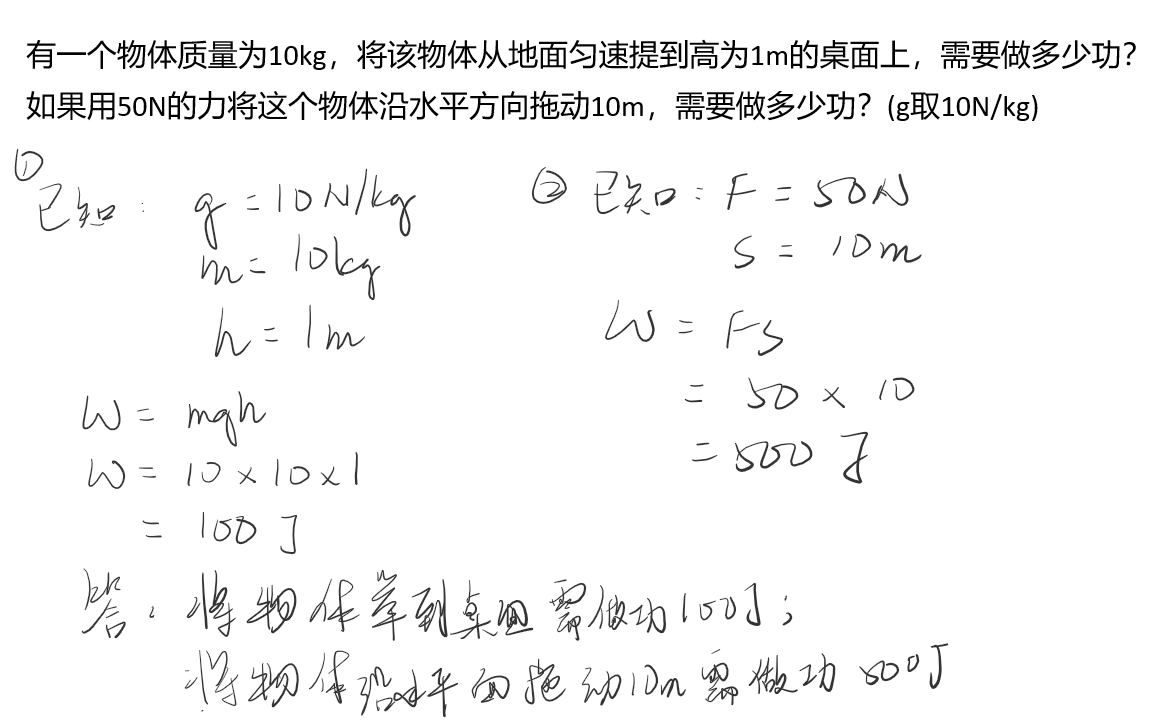 有一个物体质量为10kg，将该物体从地面匀速提到高为1m的桌面上，需要做多少功？
如果用50N的力将这个物体沿水平方向拖动10m，需要做多少功？(g取10N/kg)
①
已知： g = 10N/kg
m = 10kg
h = 1m
W = mgh
W = 10 × 10 × 1
= 100 J
② 已知：F = 50N
S = 10m
W = FS
= 50 × 10
= 500 J
答：将物体举到桌面需做功100J；
将物体沿水平面拖动10m需做功500J